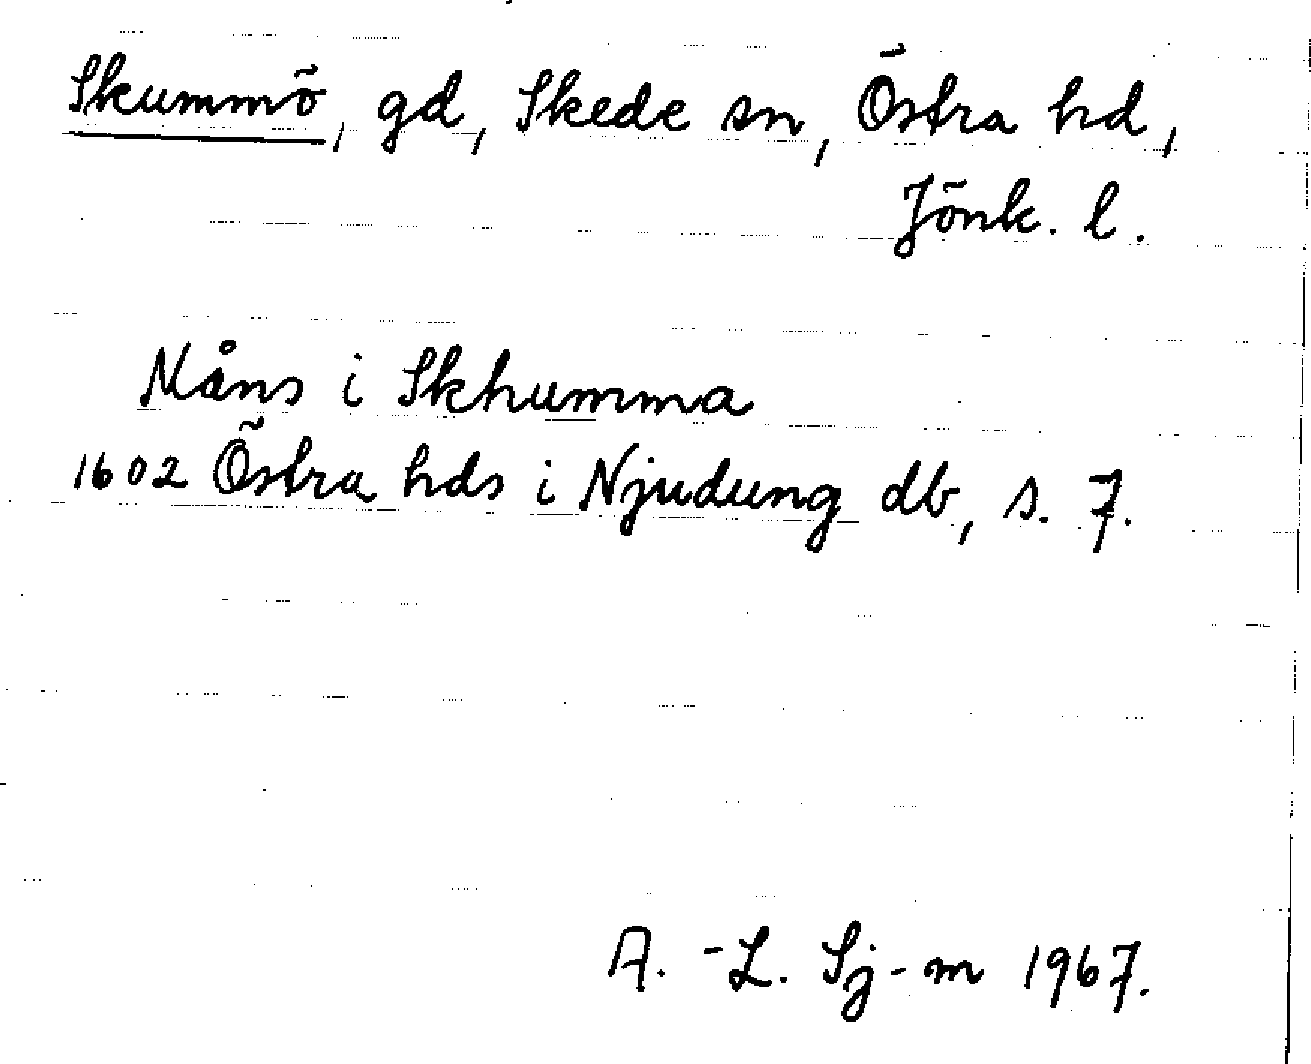 Skummö, gd, Skede sn, Östra hd,
Jönk. l.
Måns i Skhumma
1602 Östra hds i Njudung db, s. 7.
A.-L. Sj-m 1967.